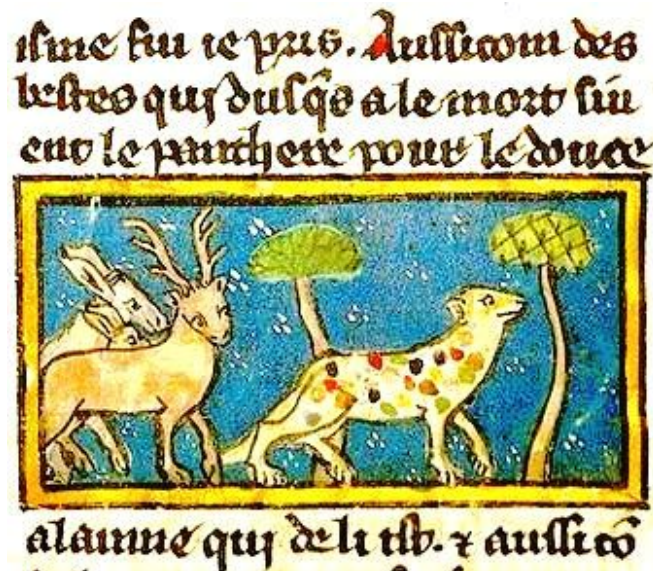 isme fui ie pris. Aussicom des
bestes qui dusq̃s a le mort siu
ent le panthere pour le douce
alainne qui de li ist. ⁊ aussi cõ